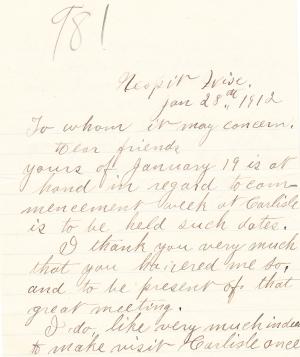 981
Neopit Wisc.
Jan 28th, 1912
To whom it may concern.
Dear friends
yours of January 19 is at
hand in regard to com-
mencement week at Carlisle
is to be held such dates.
I thank you very much
that you haivered me so,
and to be present of that
great meeting.
I do, like very much indeed
to make visit Carlisle once